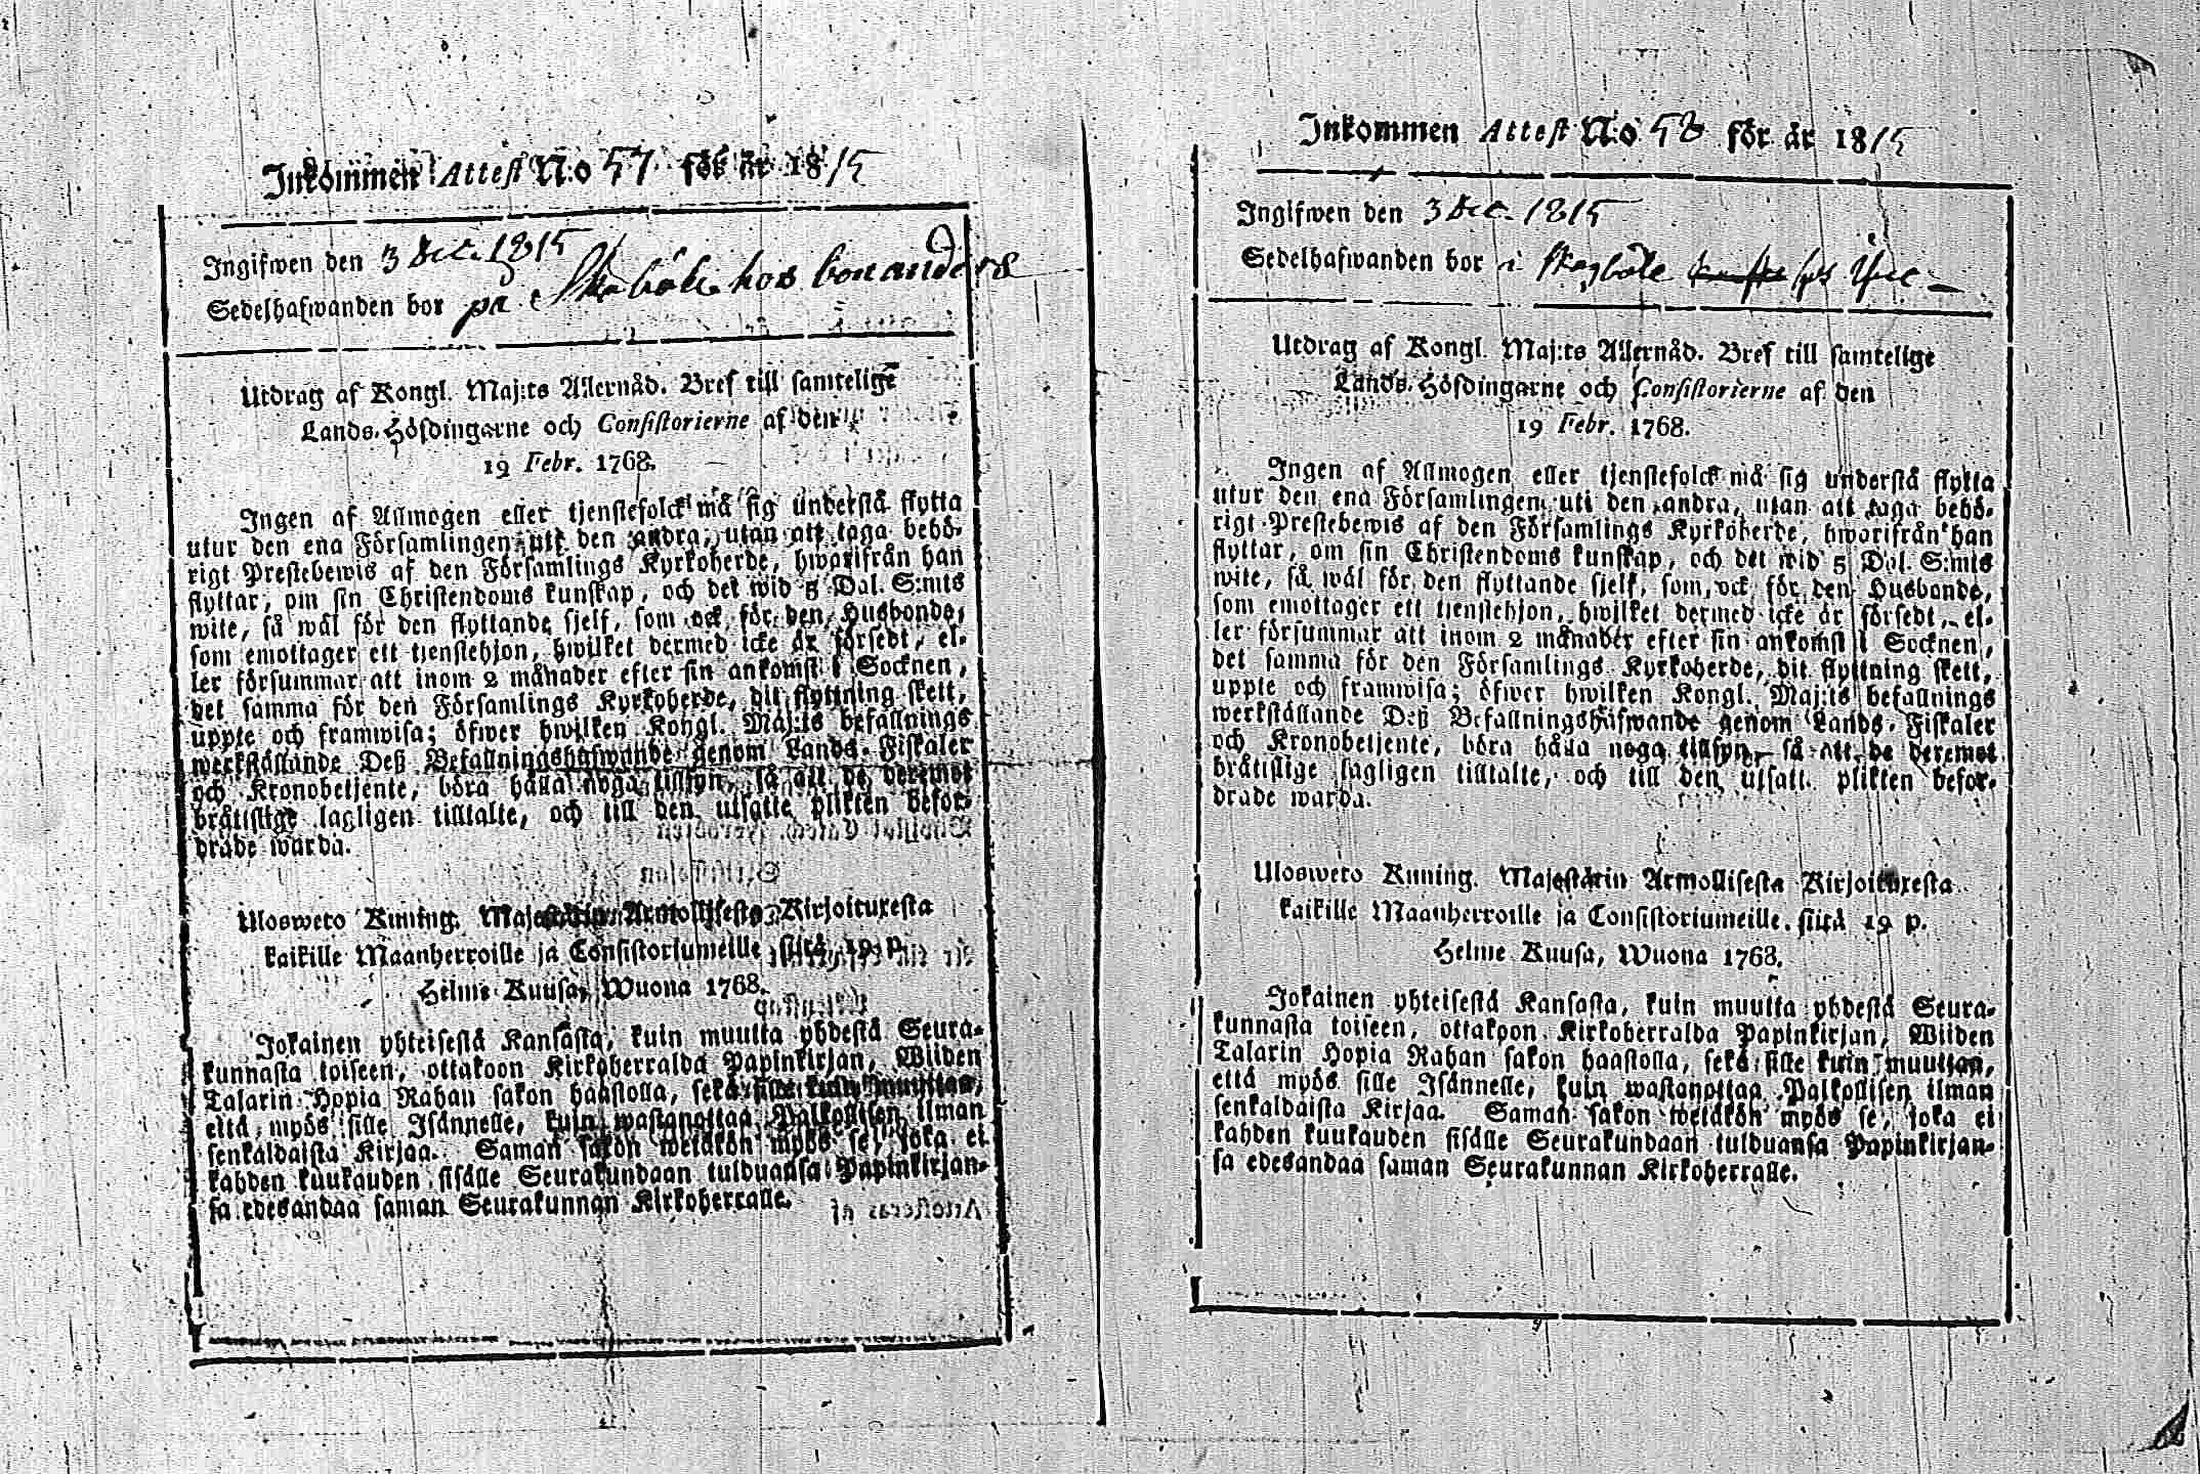 Inkommen Attest N:o 57 för år 1815
Ingifwen den 3 Dec. 1815
Sedelhafwanden bor på Skabåle hos bonanders
Utdrag af Kongl. Maj:ts Allernåd. Bref till samtelige
Lands-Höfdingarne och Consistorierne af den
19 Febr. 1768.
Ingen af Allmogen eller tjenstefolck må sig understå flytta
utur den ena Församlingen uti den andra, utan att taga behö-
rigt Prestebewis af den Församlings Kyrkoherde, hwarifrån han
flyttar, om sin Christendoms kunskap, och det wid 5 Dal. S:mts
wite, så wäl för den flyttande sjelf, som ock för den Husbonde,
som emottager ett tjenstehjon, hwilket dermed icke är försedt, el-
ler försummar att inom 2 månader efter sin ankomst i Socknen,
det samma för den Församlings Kyrkoherde, dit flyttning skett,
uppte och framwisa; öfwer hwilken Kongl. Maj:ts befallnings
werkställande Deß Befallningshafwande genom Lands-Fiskaler
och Kronobetjente, böra hålla noga tillsyn, så att de deremot
bråtislige lagligen tilltalte, och till den utsatte plikten befor-
drade warda.
Ulosweto Kuning. Majestätin Armollisesta Kirjoituxesta
kaikille Maanherroille ja Consistoriumeille, siitä 19 p.
Helme Kuusa, Wuona 1768.
Jokainen yhteisestä Kansasta, kuin muutta yhdestä Seura-
kunnasta toiseen, ottakoon Kirkoherralda Papinkirjan, Wiiden
Talarin Hopia Rahan sakon haastolla, sekä sille kuin muuttaa,
että myös sille Isännelle, kuin wastanottaa Palkollisen ilman
senkaldaista Kirjaa. Saman sakon wetäkön myös se, joka ei
kahden kuukauden sisälle Seurakundaan tulduansa Papinkirjan-
sa edesandaa saman Seurakunnan Kirkoherralle.
Inkommen Attest N:o 58 för år 1815
Ingifwen den 3 Dec. 1815
Sedelhafwanden bor i Skogböle
Utdrag af Kongl. Maj:ts Allernåd. Bref till samtelige
Lands-Höfdingarne och Consistorierne af den
19 Febr. 1768.
Ingen af Allmogen eller tjenstefolck må sig understå flytta
utur den ena Församlingen uti den andra, utan att taga behö-
rigt Prestebewis af den Församlings Kyrkoherde, hwarifrån han
flyttar, om sin Christendoms kunskap, och det wid 5 Dal. S:mts
wite, så wäl för den flyttande sjelf, som ock för den Husbonde,
som emottager ett tjenstehjon, hwilket dermed icke är försedt, el-
ler försummar att inom 2 månader efter sin ankomst i Socknen,
det samma för den Församlings Kyrkoherde, dit flyttning skett,
uppte och framwisa; öfwer hwilken Kongl. Maj:ts befallnings
werkställande Deß Befallningshafwande genom Lands-Fiskaler
och Kronobetjente, böra hålla noga tillsyn, så att de deremot
bråtislige lagligen tilltalte, och till den utsatt plikten befor-
drade warda.
Ulosweto Kuning. Majestätin Armollisesta Kirjoituxesta
kaikille Maanherroille ja Consistoriumeille, siitä 19 p.
Helme Kuusa, Wuona 1768.
Jokainen yhteisestä Kansasta, kuin muutta yhdestä Seura-
kunnasta toiseen, ottakoon Kirkoherralda Papinkirjan, Wiiden
Talarin Hopia Rahan sakon haastolla, sekä sille kuin muuttaa,
että myös sille Isännelle, kuin wastanottaa Palkollisen ilman
senkaldaista Kirjaa. Saman sakon wetäkön myös se, joka ei
kahden kuukauden sisälle Seurakundaan tulduansa Papinkirjan-
sa edesandaa saman Seurakunnan Kirkoherralle.